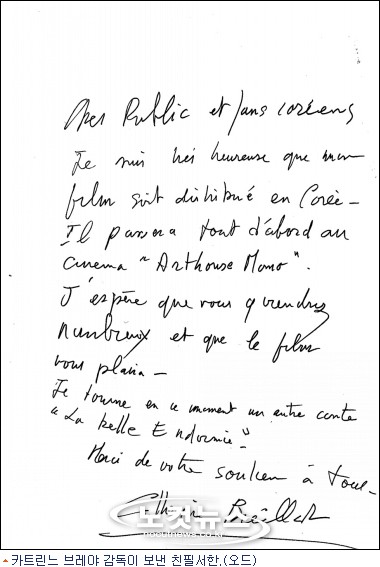 Cher Public et fans coréens
Je suis très heureuse que mon
film soit distribué en Corée –
Il passera tout d'abord au
cinema "Arthouse Momo".
J'espère que vous y viendrez
nombreux et que le film
vous plaira –
Je tourne en ce moment un autre conte
"La belle Endormie" –
Merci de votre soutien à tous –
Catherine Breillat
노컷뉴스
nocutnews.co.kr
▲카트린느 브레야 감독이 보낸 친필서한.(오드)